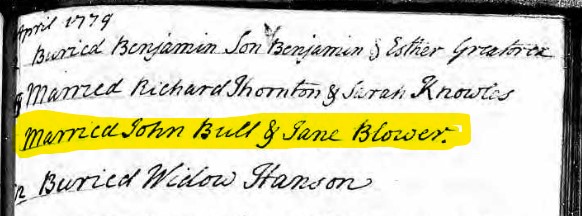 April 1779
Buried Benjamin Son Benjamin & Esther Greatrex
Married Richard Thornton & Sarah Knowles
Married John Bull & Jane Blower.
Buried Widow Hanson